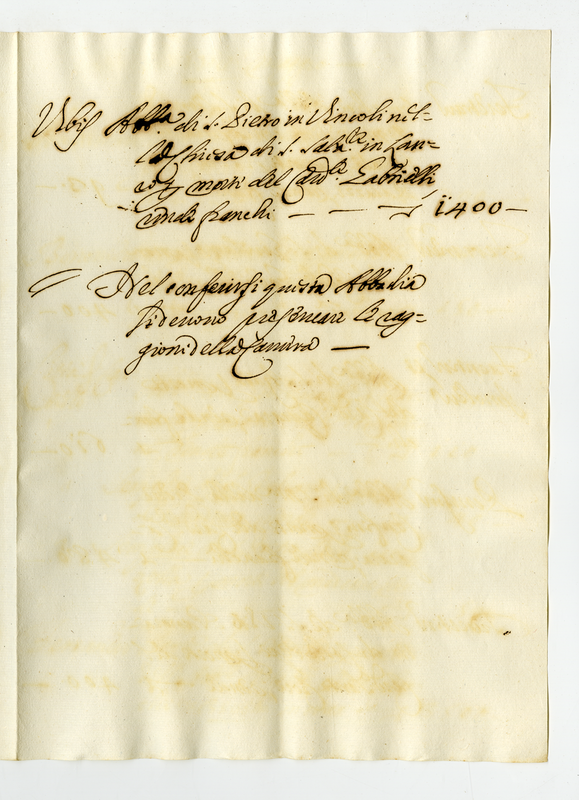 Abb.ª di S. Pietro in Vincoli nel-
la Chiesa di S. Salv.re in Lau-
ro p morte del Card.le Gabrielli
rende franchi — — — 1400 —
Nel conferirsi questa Abbadia
si devono preservare le rag-
gioni della Camera —